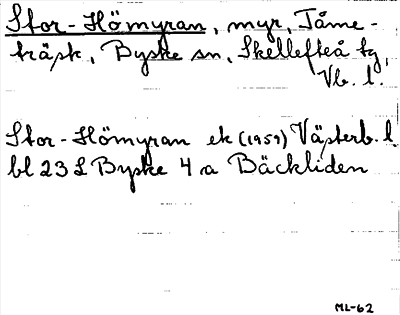 Stor-Hömyran, myr, Tåme-
träsk, Byske sn, Skellefteå tg,
Vb. l.
Stor-Hömyran ek (1959) Västerb. l.
bl 23 L Byske 4 a Bäckliden
ML-62